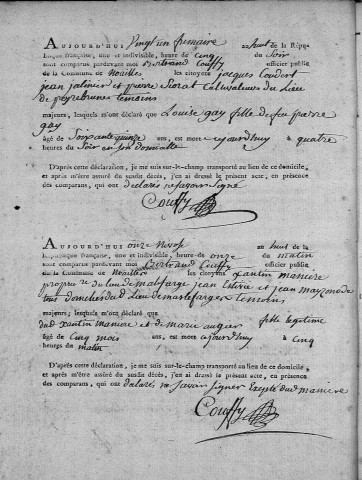 AUJOURD'HUI vingt un frimaire an huit de la Répu-
blique française, une et indivisible, heure de cinq du soir
sont comparus pardevant moi Bertrand Couffy officier public
de la Commune de Noailles les citoyens jacques Coudert
jean jatinier et pierre Siorat Cultivateurs du Lieu
de peyrebrunes temoins
majeurs, lesquels m'ont déclaré que Louise gay fille de feu pierre
gay
âgé de Soixante quinze ans, est mort cejourd'huy à quatre
heures du Soir en son domicille
D'après cette déclaration, je me suis sur-le-champ transporté au lieu de ce domicile,
et après m'être assuré du susdit décès, j'en ai dressé le présent acte, en présence
des comparans, qui ont déclarés ne savoir Signé
Couffy
AUJOURD'HUI onze Nivose an huit de la
République française, une et indivisible, heure de onze du matin
sont comparus pardevant moi Bertrand Couffy officier public
de la Commune de Noailles les citoyens xantin maniere
propre du lieu de et jean
tous domicliés dud Lieu de temoins
majeurs, lesquels m'ont déclaré que
dud xantin maniere et de marie augier fille legitime
âgé de cinq mois ans, est mort cejourd'huy à cinq
heures du matin
D'après cette déclaration, je me suis sur-le-champ transporté au lieu de ce domicile,
et après m'être assuré du susdit décès, j'en ai dressé le présent acte, en présence
des comparans, qui ont déclaré ne savoir signer Exepté dud maniere
Couffy